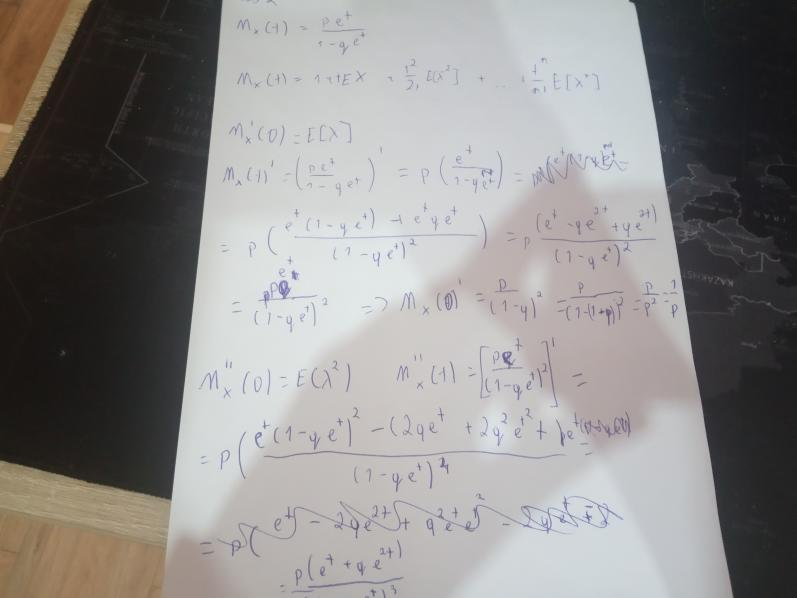 M_x(t) = pe^t / 1-qe^t
M_x(t) = 1+tEX + t^2/2! E[X^2] + ... + t^n/n! E[X^n]
M_x'(0) = E[X]
M_x(t)' = (pe^t / 1-qe^t)' = p(e^t / 1-qe^t)' =
= p( e^t(1-qe^t) + e^t qe^t / (1-qe^t)^2 ) = p (e^t - qe^2t + qe^2t) / (1-qe^t)^2
= p e^t / (1-qe^t)^2 => M_x(0)' = p / (1-q)^2 = p / (1-(1-p))^2 = p/p^2 = 1/p
M_x''(0) = E(X^2) M_x''(t) = [pe^t / (1-qe^t)^2]' =
= p( e^t(1-qe^t)^2 - (2qe^t + 2q^2 e^t2 + )e^t / (1-qe^t)^4 =
= p( e^t - 2qe^2t + q^2
= p(e^t + qe^2t) / e^t)^3
KAZAKHSTAN